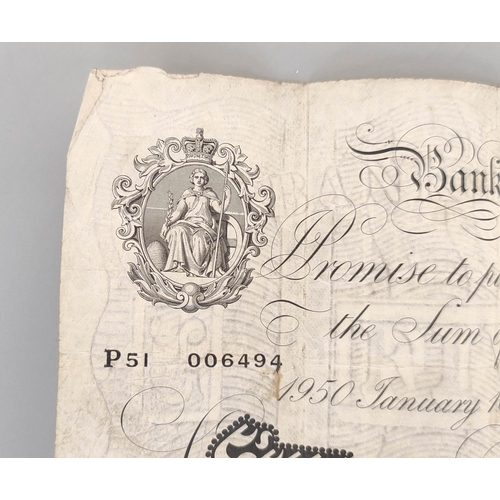 Bank
Promise to
the Sum
P51 006494
1950 January